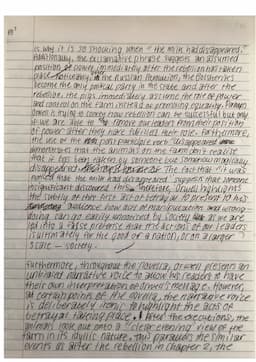 is why it is so shocking when "the milk had disappeared."
Additionally, the exclamative phrase suggests an assumed
position of power immediately after the rebellion has taken
place. Historically, the Russian Revolution, the Bolsheviks
become the only political party in the state and after the
rebellion, the pigs immediately assume the role of power
and control on the farm instead of promoting equality.
Orwell is trying to convey how rebellion can be successful but only
if we are able to remove our leaders from their position
of power after they have fulfilled their role. Furthermore,
the use of the past participle verb "disappeared"
demonstrates that the animals on the farm don't realise
that it has been taken by someone but somehow magically
disappeared. The fact that "it was
noticed that the milk had disappeared" suggests that
insignificant discovered this. Therefore, Orwell highlights
the subtlety of this first act of betrayal to present to his
audience how acts of and wrong-
doing can go easily unnoticed by society as we are
led into a false pretense that the actions of our leaders
is ultimately for the good of a nation, or on a larger
scale - society.
Furthermore, throughout the novella, Orwell presents an
narrative voice to allow his readers to have
their own interpretation of Orwell's message. However,
at certain points of the novella, the narrative voice
is deliberately ironic to highlight the acts of
betrayal taking place. After the executions, the
animals look out onto a "clear evening" view of the
farm in its idyllic nature, this parallels the similar
events as after the rebellion in Chapter 2, the